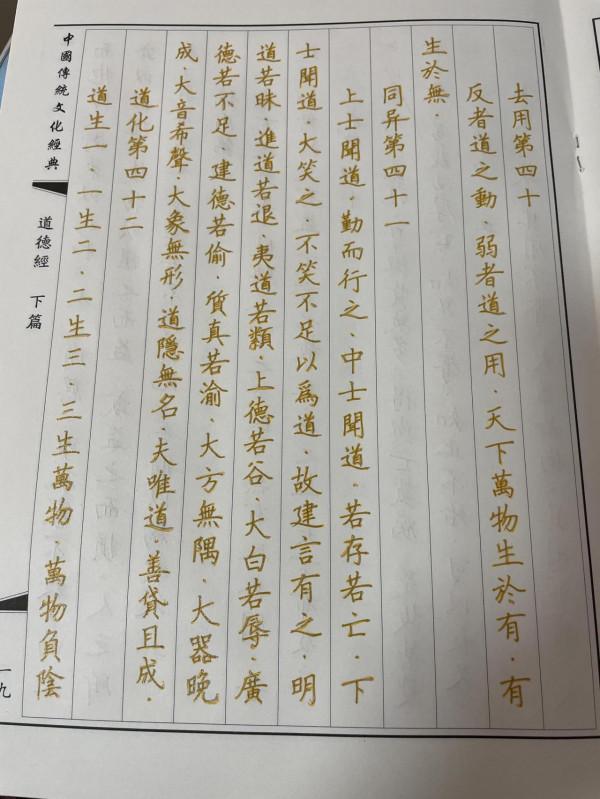 去用第四十
反者道之動．弱者道之用．天下萬物生於有．有
生於無．
同异第四十一
上士聞道．勤而行之．中士聞道．若存若亡．下
士聞道．大笑之．不笑不足以爲道．故建言有之．明
道若昧．進道若退．夷道若類．上德若谷．大白若辱．廣
德若不足．建德若偷．質真若渝．大方無隅．大器晚
成．大音希聲．大象無形．道隱無名．夫唯道．善貸且成．
道化第四十二
道生一．一生二．二生三．三生萬物．萬物負陰
中國傳統文化經典
道德經 下篇
一九